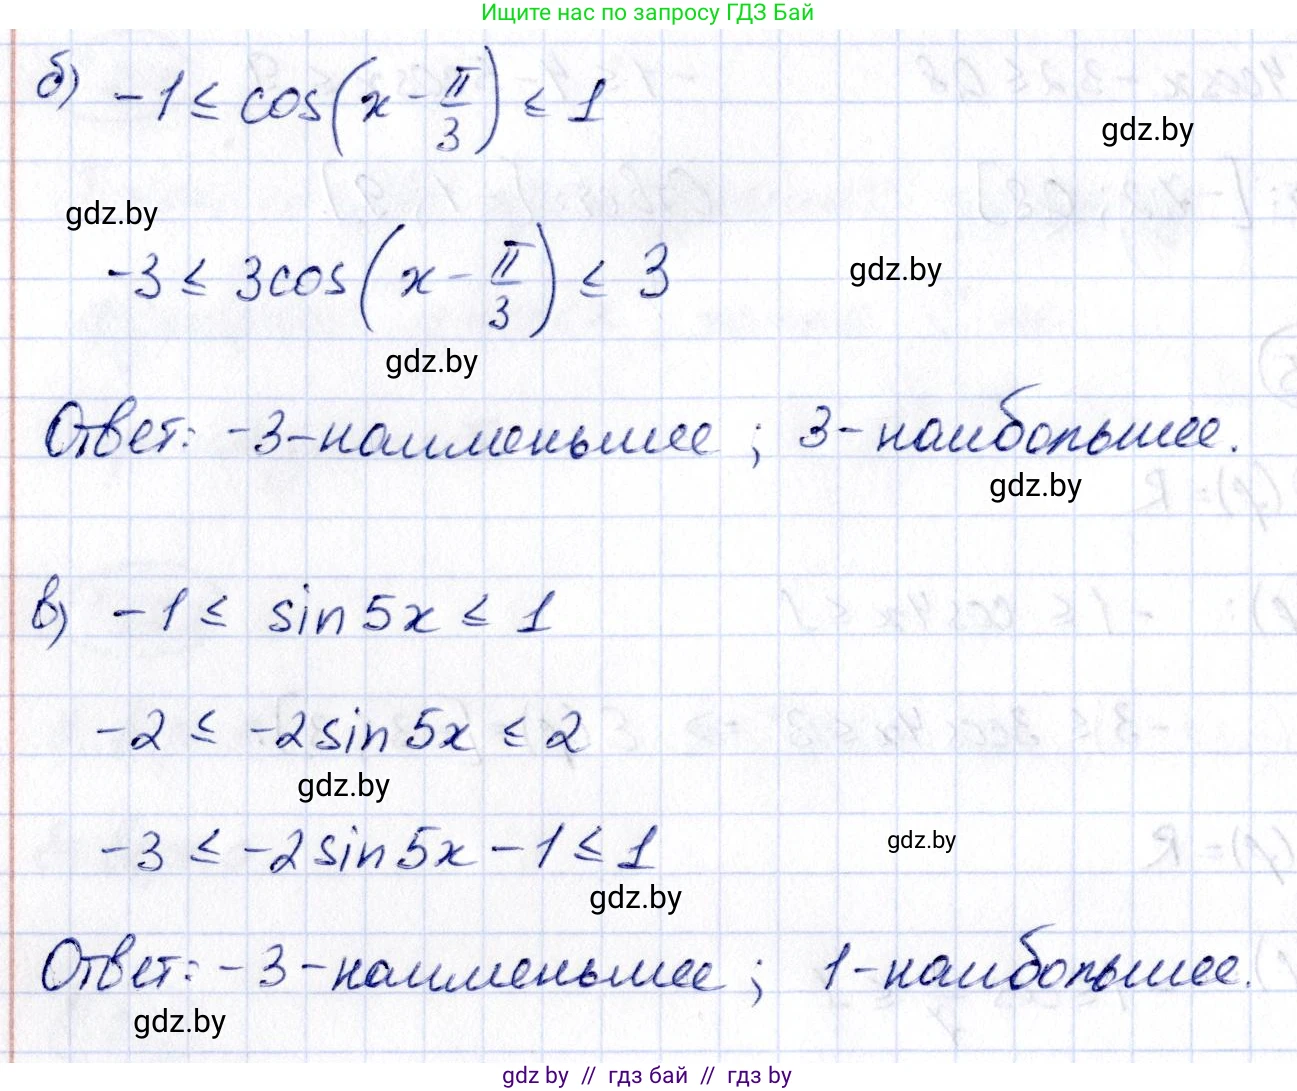 Ищите нас по запросу ГДЗ Бай
б) -1 ≤ cos(x - π/3) ≤ 1
gdz.by
gdz.by
-3 ≤ 3cos(x - π/3) ≤ 3
gdz.by
gdz.by
Ответ: -3 - наименьшее ; 3 - наибольшее.
gdz.by
в) -1 ≤ sin5x ≤ 1
-2 ≤ -2sin5x ≤ 2
gdz.by
-3 ≤ -2sin5x - 1 ≤ 1
gdz.by
gdz.by
Ответ: -3 - наименьшее ; 1 - наибольшее.
gdz.by
gdz by // гдз бай // гдз by